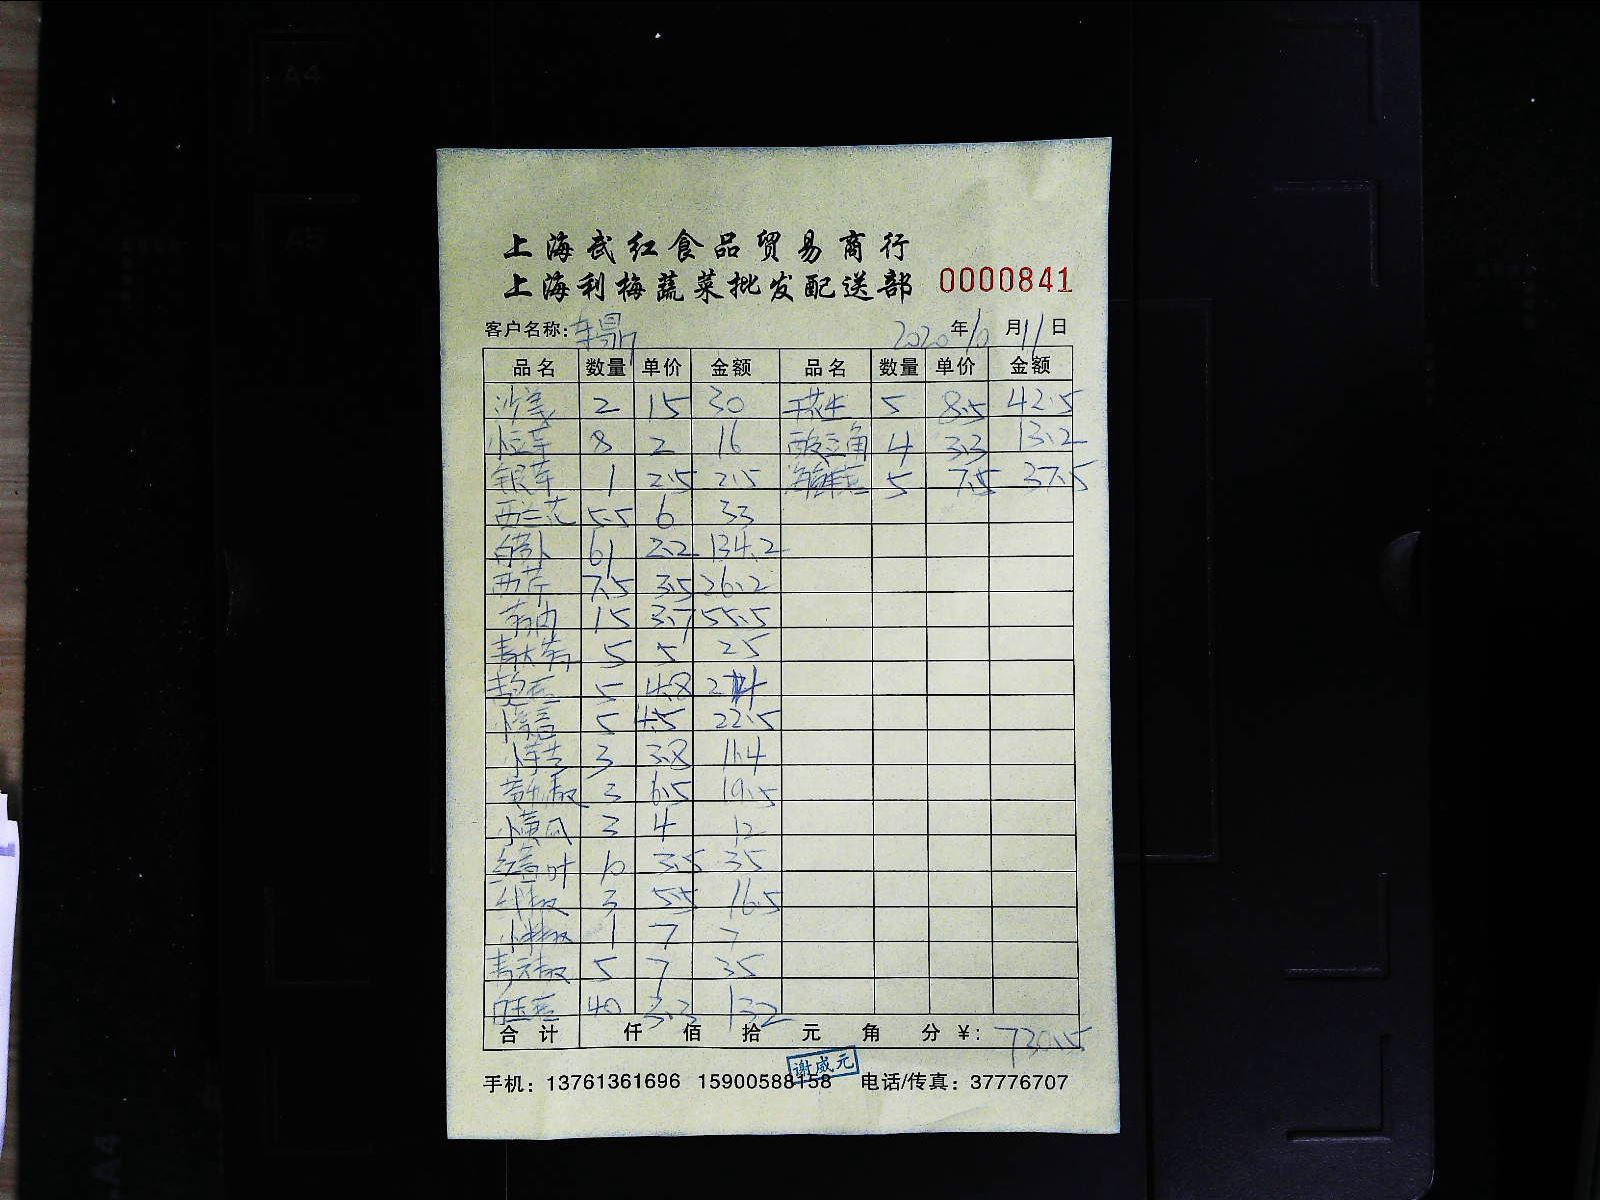 A4
A5
上海武红食品贸易商行
上海利梅蔬菜批发配送部 0000841
客户名称: 2020年10月11日
品名 数量 单价 金额 品名 数量 单价 金额
沙姜 2 15 30 干花生 5 8.5 42.5
小豆芽 8 2 16 酸三角 4 3.3 13.2
银芽 1 2.5 2.5 5 7.5 37.5
西兰花 5.5 6 33
白萝卜 61 2.2 134.2
西芹 7.5 3.5 26.2
15 3.7 55.5
5 5 25
5 4.8 24
5 4.5 22.5
3 3.8 11.4
3 6.5 19.5
小黄瓜 3 4 12
10 3.5 35
3 5.5 16.5
小米椒 1 7 7
5 7 35
40 3.3 132
合计 仟 佰 拾 元 角 分 ¥: 730.5
谢威元
手机: 13761361696 15900588158 电话/传真: 37776707
A4